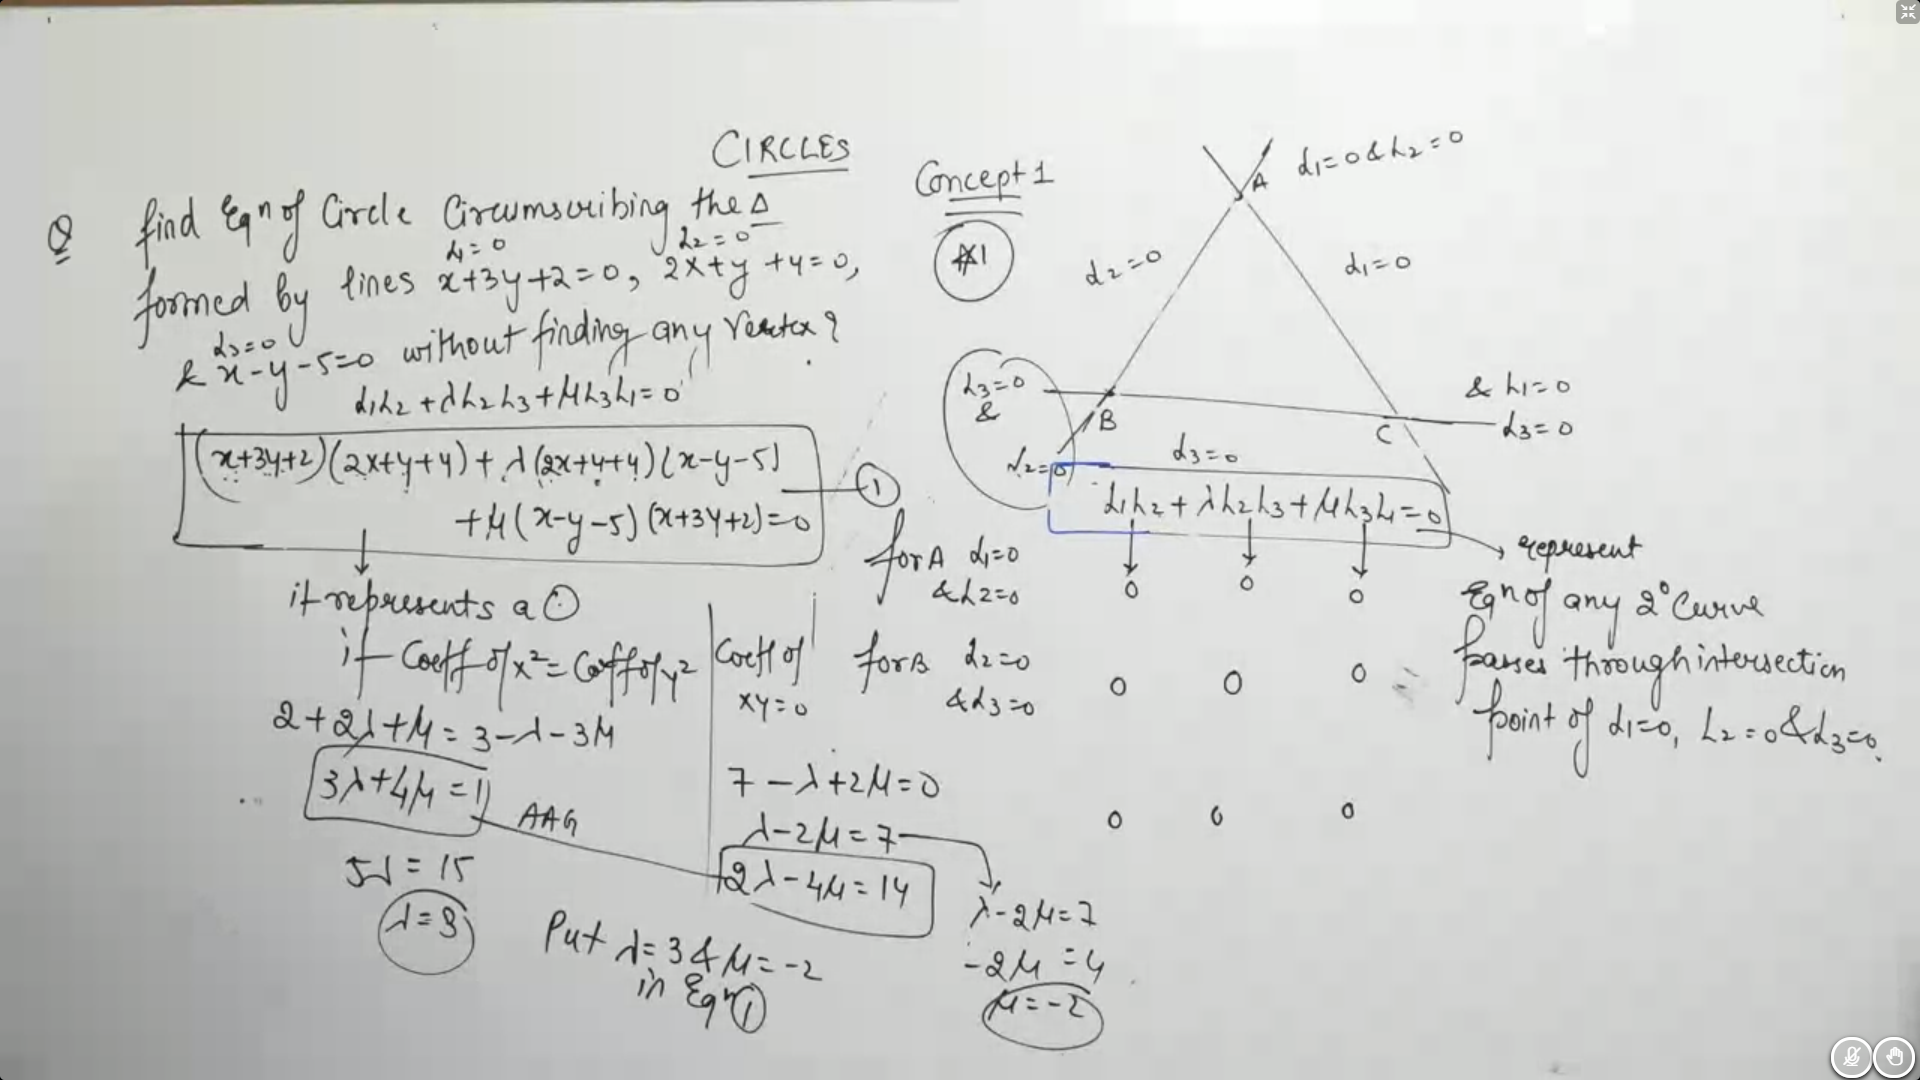 CIRCLES
Q find Eqn of Circle Circumscribing the Δ
L1=0 L2=0
formed by lines x+3y+2=0, 2x+y+4=0,
L3=0
& x-y-5=0 without finding any Vertex?
L1L2+λL2L3+μL3L1=0
(x+3y+2)(2x+y+4)+λ(2x+y+4)(x-y-5)
+μ(x-y-5)(x+3y+2)=0
①
it represents a ⊙
if Coeff of x²=Coff of y²
2+2λ+μ=3-λ-3μ
3λ+4μ=1
AAG
5λ=15
λ=3
Coeff of
xy=0
7-λ+2μ=0
λ-2μ=7
2λ-4μ=14
λ-2μ=7
-2μ=4
μ=-2
Put λ=3 & μ=-2
in Eqn ①
Concept 1
*1
A L1=0 & L2=0
L2=0 L1=0
L3=0
&
L2=0
B
C
& L1=0
L3=0
L3=0
L1L2+λL2L3+μL3L1=0
for A L1=0
& L2=0
0 0 0
for B L2=0
& L3=0
0 0 0
0 0 0
represent
Eqn of any 2° Curve
passes through intersection
point of L1=0, L2=0 & L3=0.